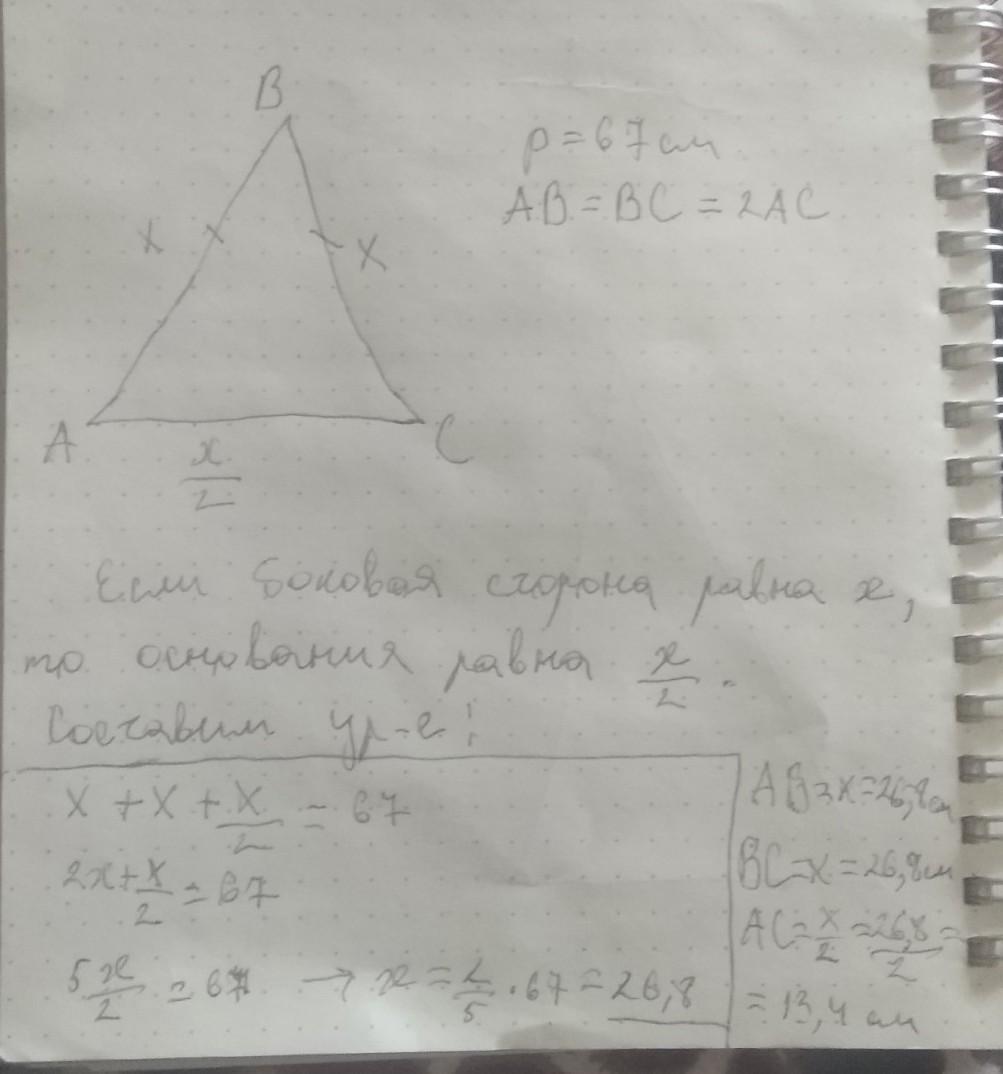 B
p = 67 см
AB = BC = 2AC
x
x
A
C
x/2
Если боковая сторона равна x,
то основания равна x/2.
Составим ур-е:
x + x + x/2 = 67
2x + x/2 = 67
5 x/2 = 67 → x = 2/5 · 67 = 26,8
AB = x = 26,8 см
BC = x = 26,8 см
AC = x/2 = 26,8/2 =
= 13,4 см